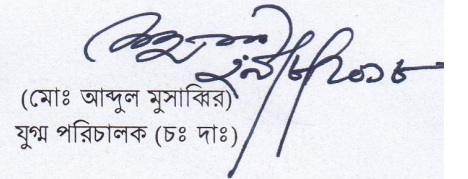 (মোঃ আব্দুল মুসাব্বির)
যুগ্ম পরিচালক (চঃ দাঃ)